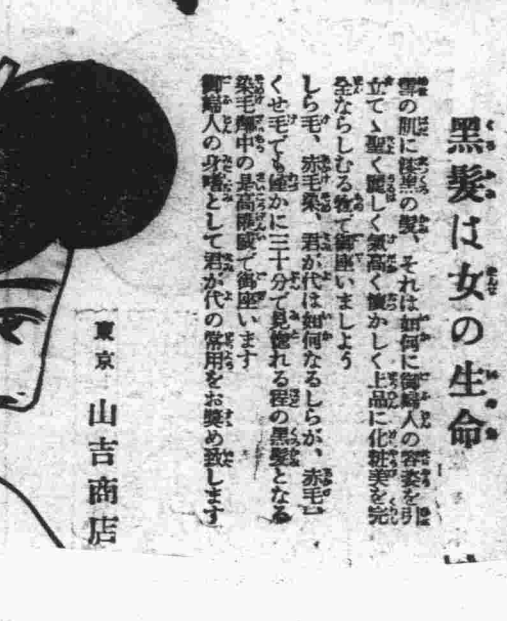 黑髮は女の生命
雪の肌に漆黑の髮、それは如何に御婦人の容姿を引
立てゝ聖く麗しく氣高く懷かしく上品に化粧美を完
全ならしむる物で御座いましよう
しら毛、赤毛染、君が代は如何なるしらが、赤毛
くせ毛でも僅かに三十分で見惚れる程の黑髮となる
染毛劑中の最高權威で御座います
御婦人の身嗜として君が代の常用をお奬め致します
東京 山吉商店